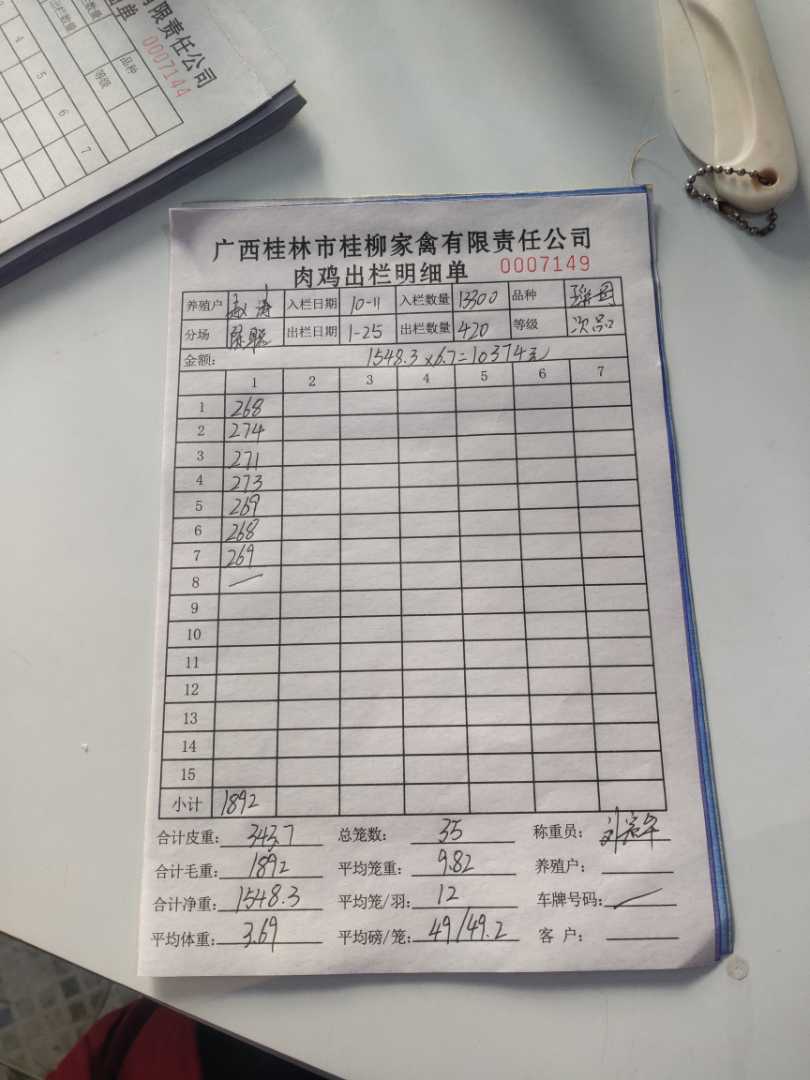 有限责任公司
细单 0007144
出栏数量
品种
等级
4 5 6 7
广西桂林市桂柳家禽有限责任公司
肉鸡出栏明细单 0007149
养殖户 赵涛 入栏日期 10-11 入栏数量 13300 品种
分场 出栏日期 1-25 出栏数量 420 等级 次品
金额: 1548.3×6.7=10374元
1 2 3 4 5 6 7
1 268
2 274
3 271
4 273
5 269
6 268
7 269
8 —
9
10
11
12
13
14
15
小计 1892
合计皮重: 343.7 总笼数: 35 称重员:
合计毛重: 1892 平均笼重: 9.82 养殖户:
合计净重: 1548.3 平均笼/羽: 12 车牌号码:
平均体重: 3.69 平均磅/笼: 49/49.2 客 户: